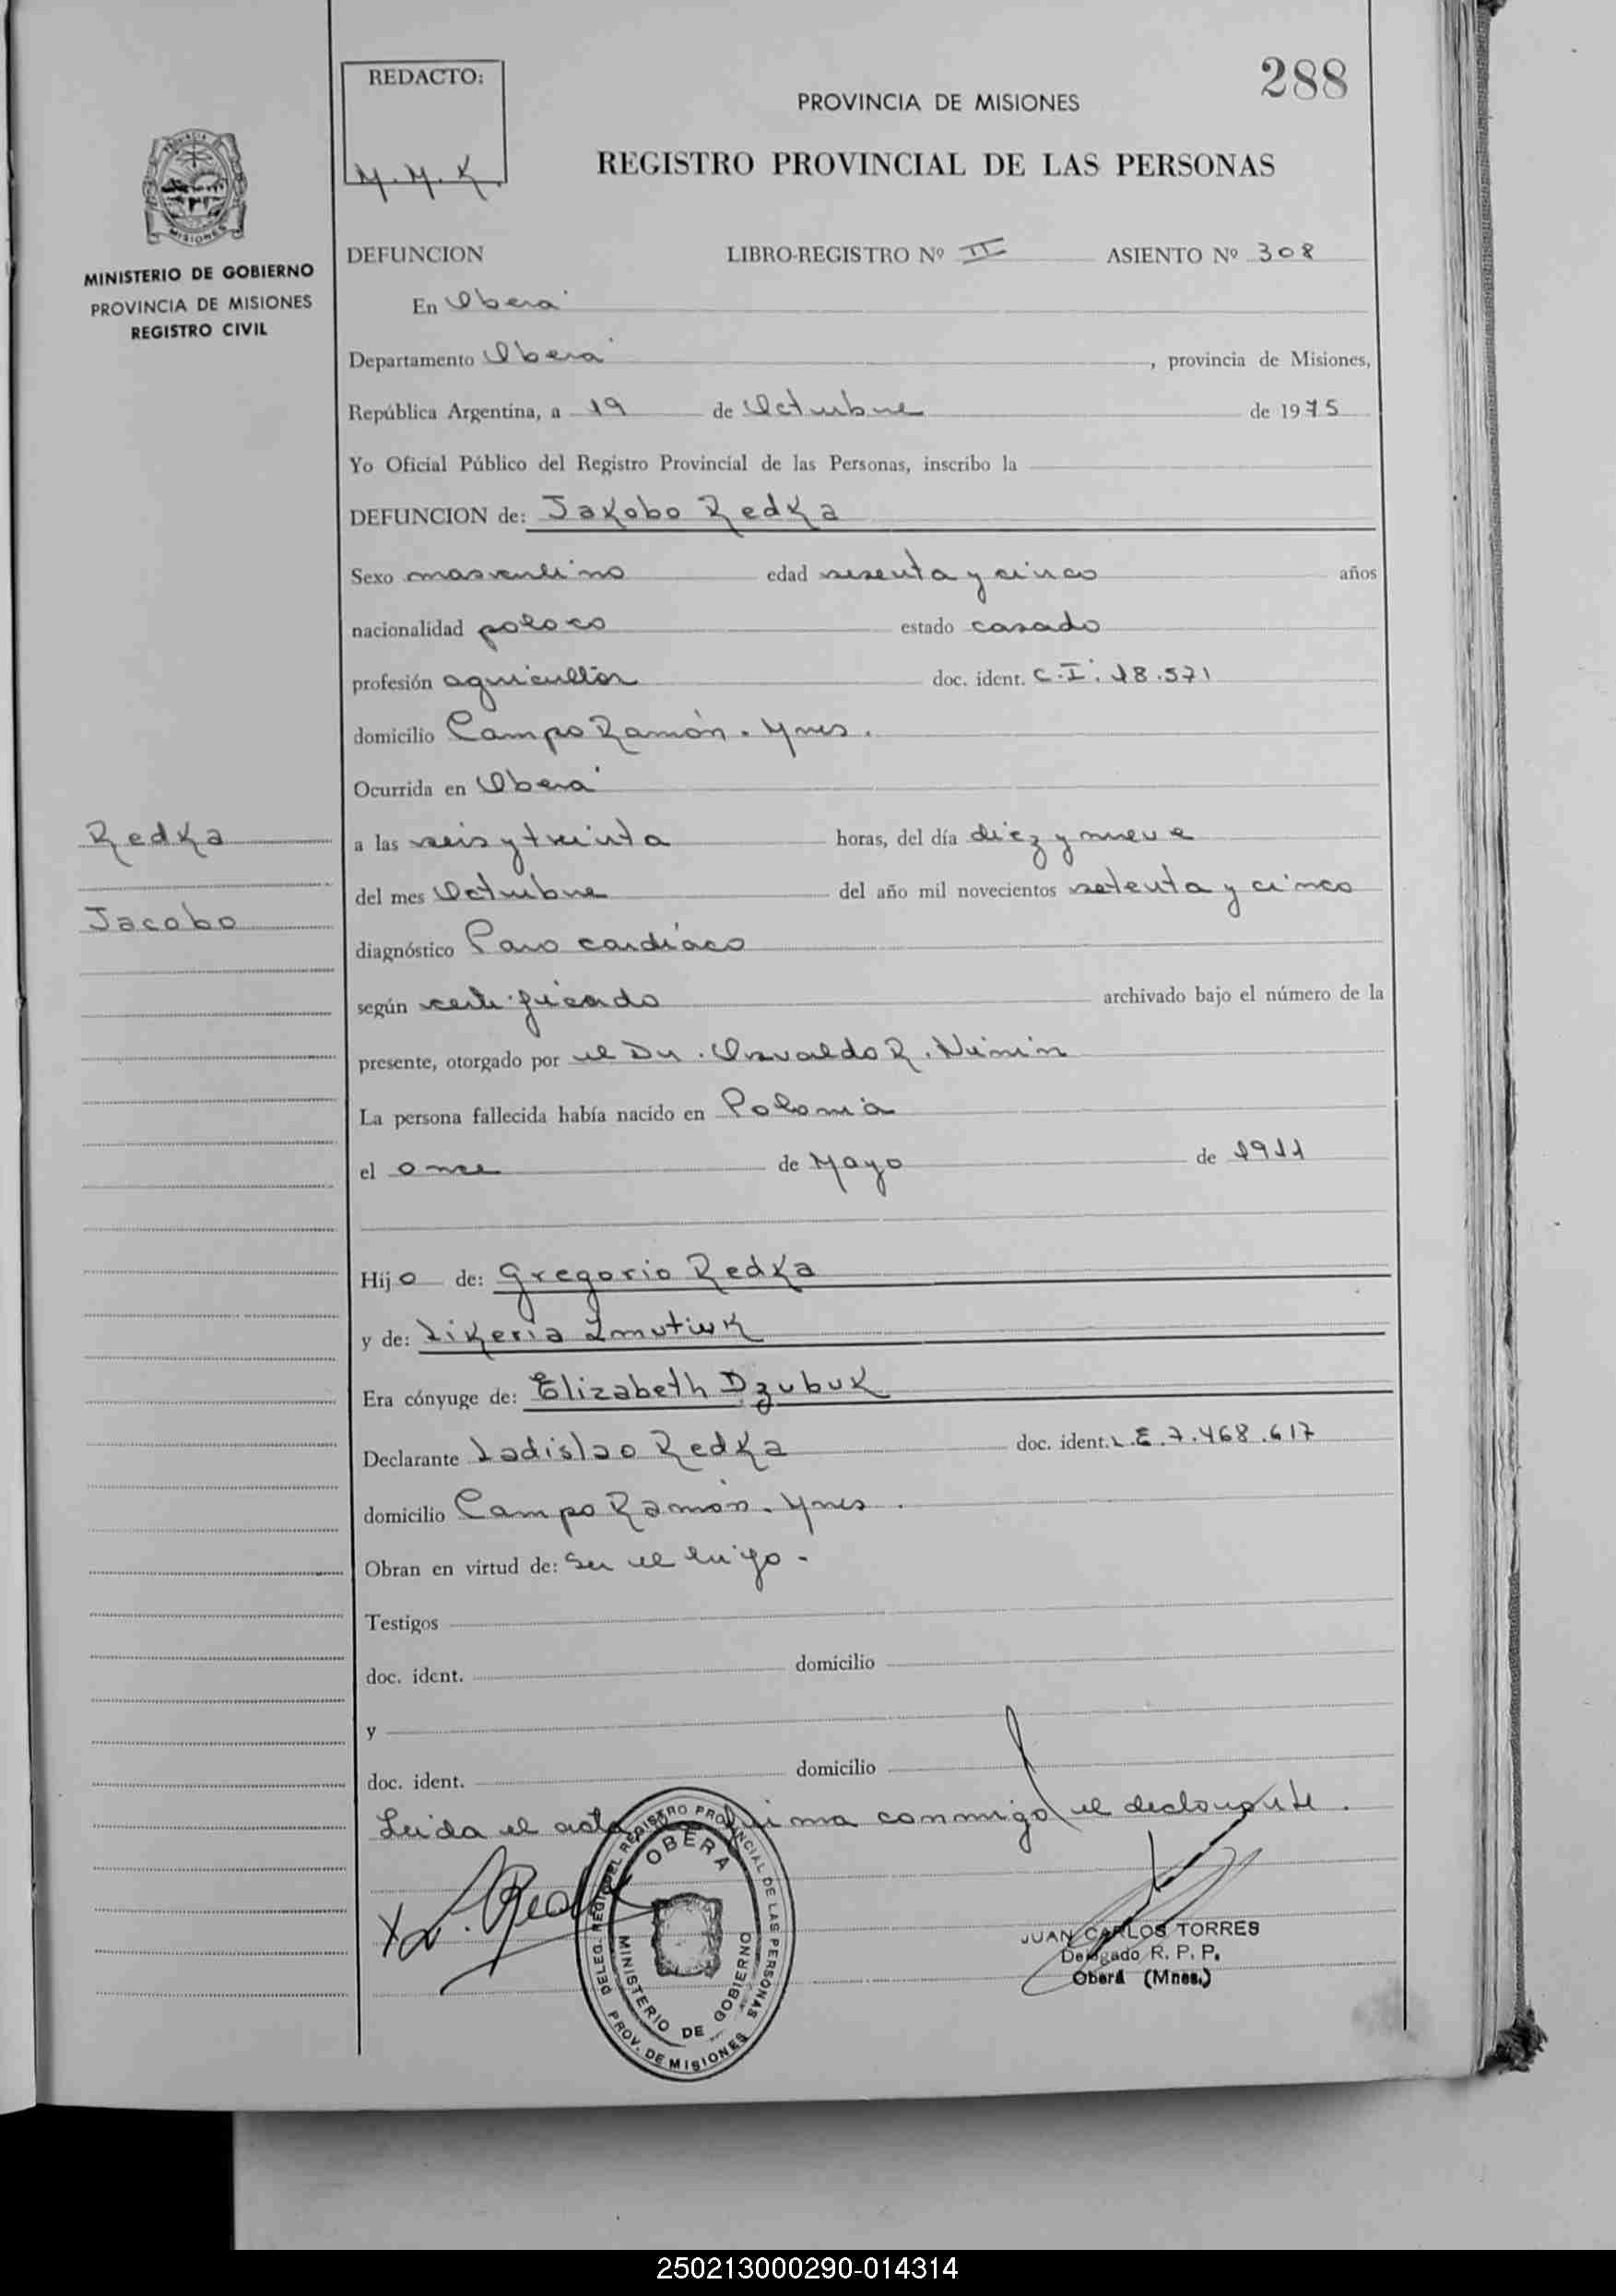 288
REDACTO:
M.M.K.
PROVINCIA DE MISIONES
REGISTRO PROVINCIAL DE LAS PERSONAS
MISIONES
MINISTERIO DE GOBIERNO
PROVINCIA DE MISIONES
REGISTRO CIVIL
DEFUNCION LIBRO-REGISTRO Nº II ASIENTO Nº 308
En Oberá
Departamento Oberá, provincia de Misiones,
República Argentina, a 19 de Octubre de 1975
Yo Oficial Público del Registro Provincial de las Personas, inscribo la
DEFUNCION de: Jakobo Redka
Sexo masculino edad sesenta y cinco años
nacionalidad polaco estado casado
profesión agricultor doc. ident. C.I. 18.571
domicilio Campo Ramón. Mnes.
Ocurrida en Oberá
Redka
a las seis y treinta horas, del día diez y nueve
del mes Octubre del año mil novecientos setenta y cinco
Jacobo
diagnóstico Paro cardíaco
según certificado archivado bajo el número de la
presente, otorgado por el Dr. Osvaldo R.
La persona fallecida había nacido en Polonia
el once de Mayo de 1911
Hijo de: Gregorio Redka
y de: Likeria
Era cónyuge de: Elizabeth Dzubuk
Declarante Ladislao Redka doc. ident. L.E. 7.468.617
domicilio Campo Ramón. Mnes.
Obran en virtud de: Ser el hijo.
Testigos
doc. ident. domicilio
y
doc. ident. domicilio
Leida el acta firma conmigo el declarante.
DELEG. REGIONAL REGISTRO PROVINCIAL DE LAS PERSONAS
OBERA
MINISTERIO DE GOBIERNO
PROV. DE MISIONES
JUAN CARLOS TORRES
Delegado R. P. P.
Oberá (Mnes.)
250213000290-014314